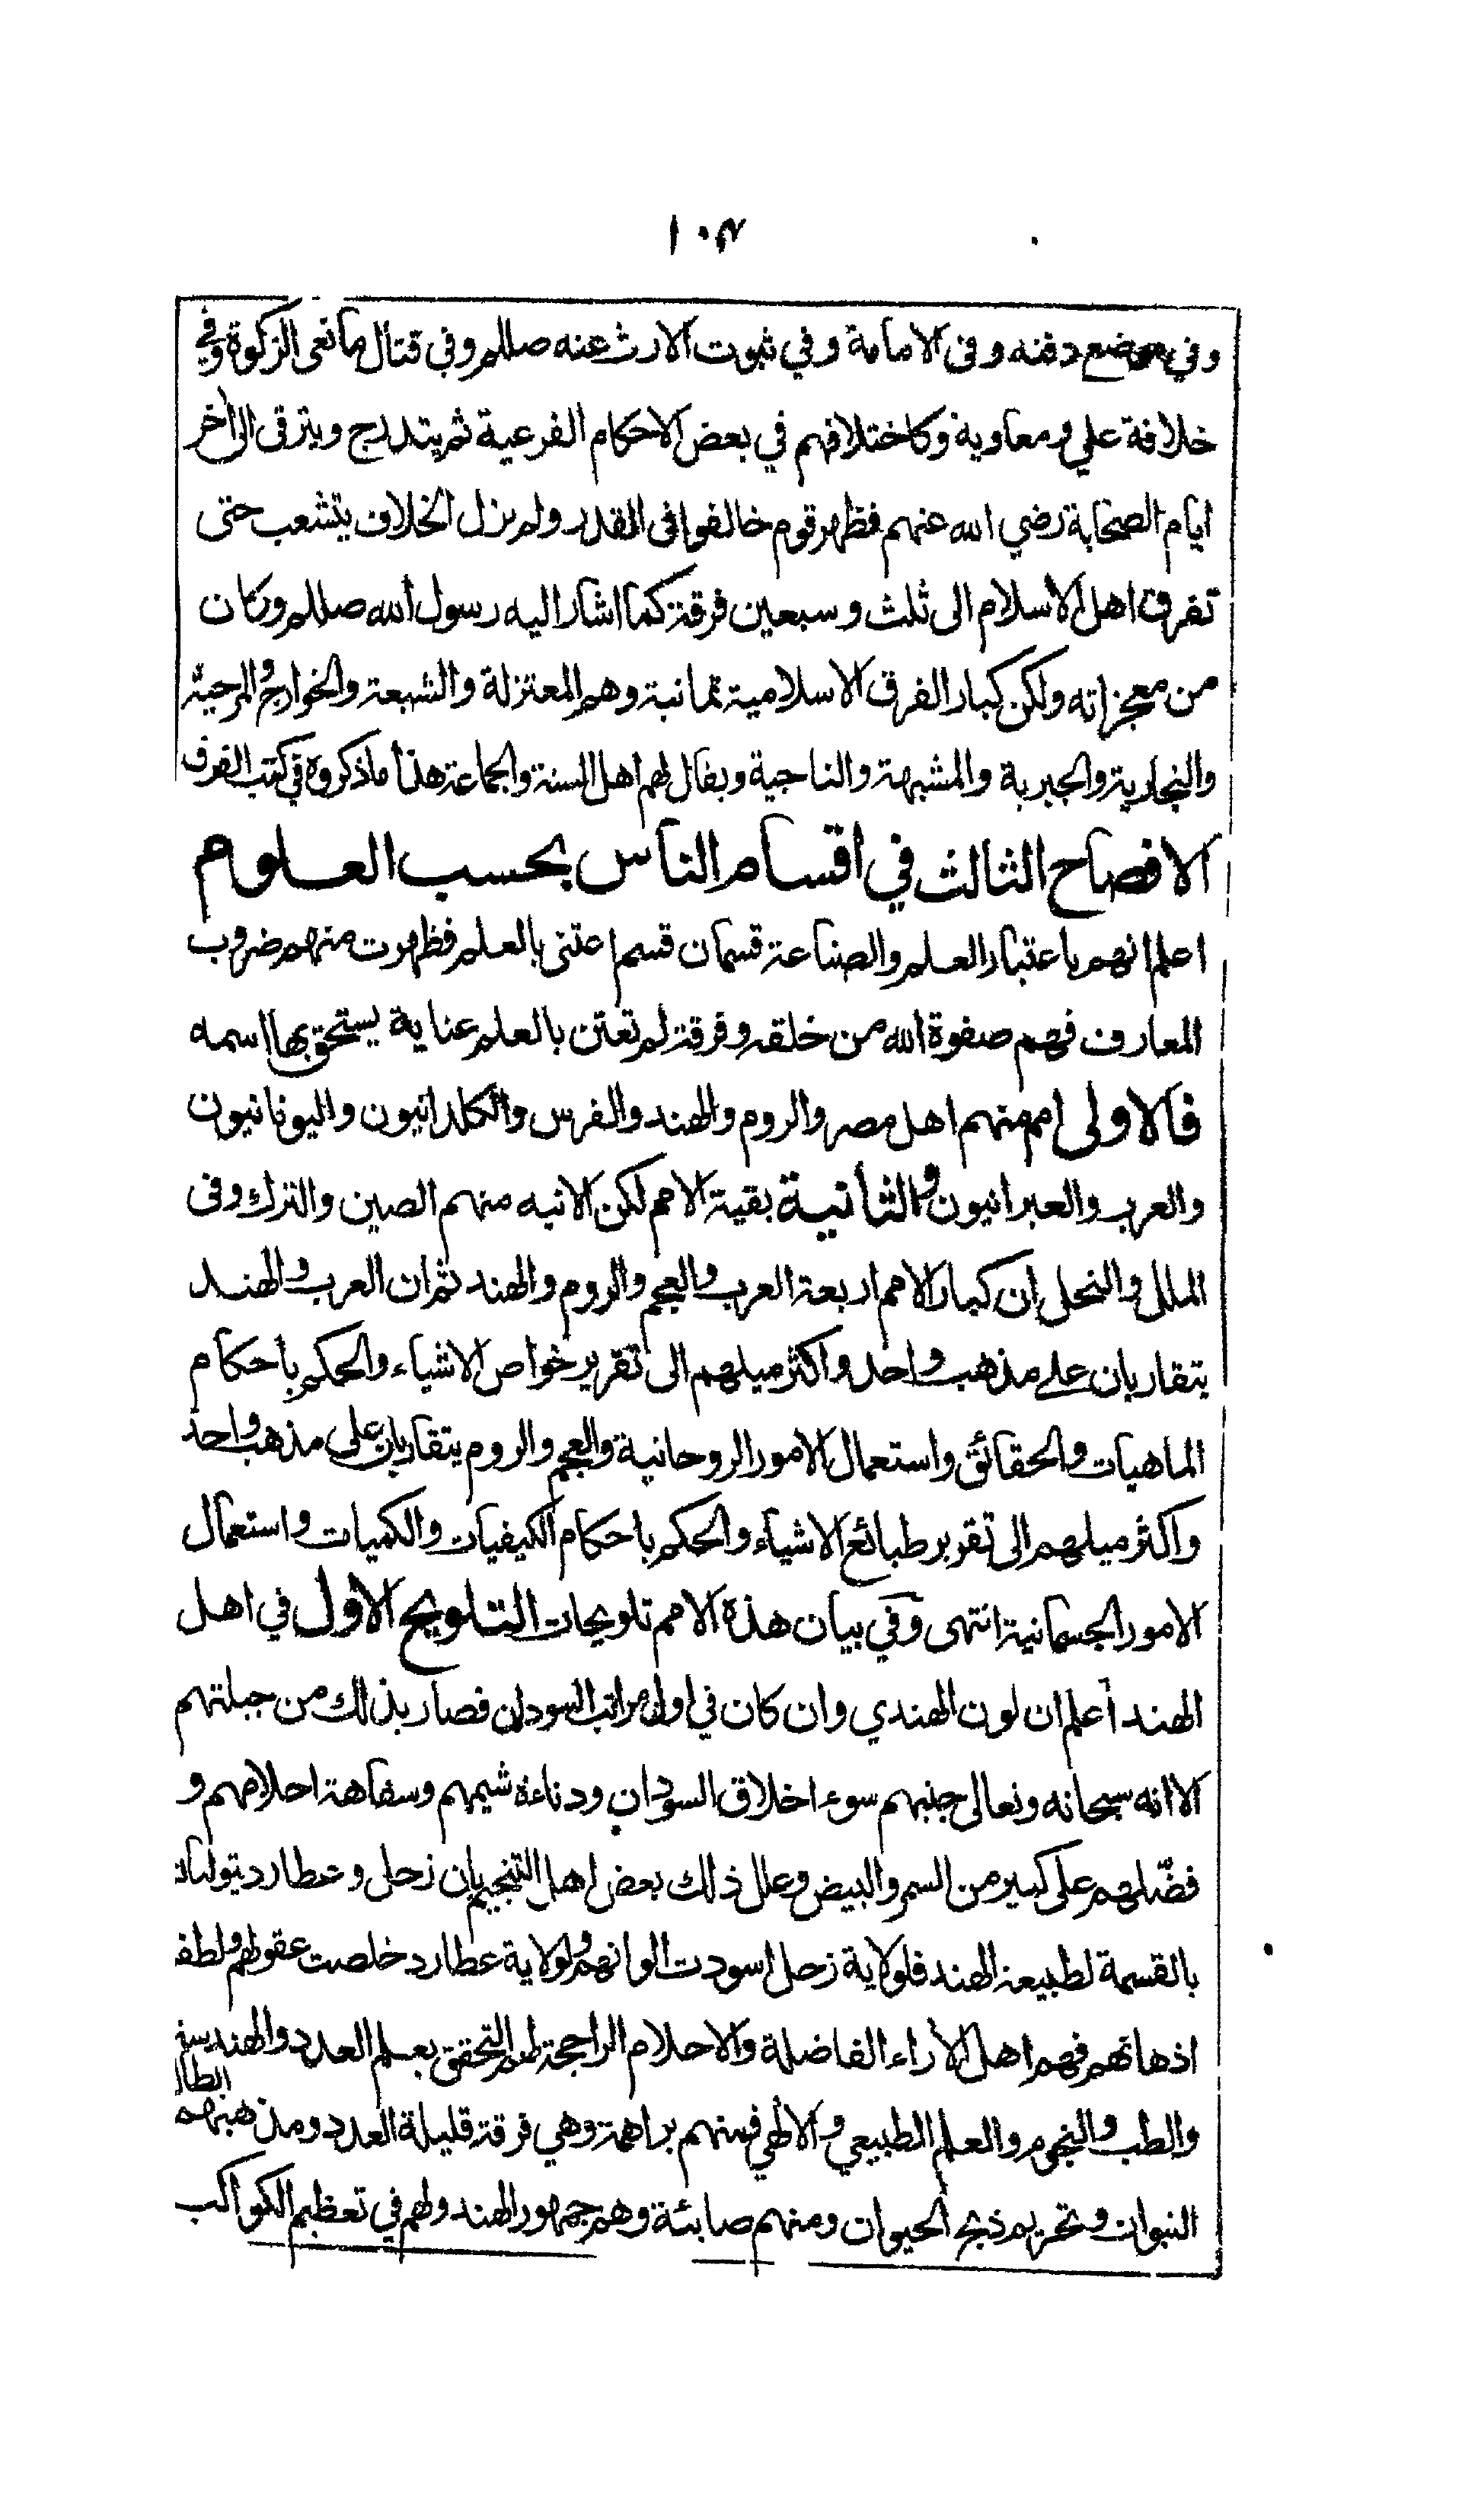 ١٠٣
وفي موضع دفنه وفى الامامة وفي ثبوت الارث عنه صللم وفى قتال مانعى الزكوة وفي
خلافة علي ومعاوية وكاختلافهم في بعض الاحكام الفرعية ثم يتدرج ويترقى الى آخر
ايام الصحابة رضي الله عنهم فظهر قوم خالفوا فى القدر ولم يزل الخلاف يتشعب حتى
تفرق اهل الاسلام الى ثلث وسبعين فرقة كما اشار اليه رسول الله صللم وكان
من معجزاته ولكن كبار الفرق الاسلامية ثمانية وهم المعتزلة والشيعة والخوارج والمرجية
والنجارية والجبرية والمشبهة والناجية ويقال لهم اهل السنة والجماعة هذا ما ذكروه في كتب الفرق
الافصاح الثالث في اقسام الناس بحسب العلوم
اعلم انهم باعتبار العلم والصناعة قسمان قسم اعتنى بالعلم فظهرت منهم ضروب
المعارف فهم صفوة الله من خلقه وفرقة لم تعتن بالعلم عناية يستحق بها اسمه
فالاولى امم منهم اهل مصر والروم والهند والفرس والكلدانيون واليونانيون
والعرب والعبرانيون والثانية بقية الامم لكن الانبه منهم الصين والترك وفى
الملل والنحل ان كبار الامم اربعة العرب والعجم والروم والهند ثم ان العرب والهند
يتقاربان على مذهب واحد واكثر ميلهم الى تقرير خواص الاشياء والحكم باحكام
الماهيات والحقائق واستعمال الامور الروحانية والعجم والروم يتقاربان على مذهب واحد
واكثر ميلهم الى تقرير طبائع الاشياء والحكم باحكام الكيفيات والكميات واستعمال
الامور الجسمانية انتهى وفي بيان هذه الامم تلويحات التلويح الاول في اهل
الهند اعلم ان لون الهندي وان كان في اول مراتب السودان فصار بذلك من جبلتهم
الا انه سبحانه وتعالى جنبهم سوء اخلاق السودان ودناءة شيمهم وسفاهة احلامهم و
فضّلهم على كثير من السمر والبيض وعلل ذلك بعض اهل التنجيم بان زحل وعطارد يتوليان
بالقسمة لطبيعة الهند فلولاية زحل اسودت الوانهم ولولاية عطارد خلصت عقولهم ولطفت
اذهانهم فهم اهل الآراء الفاضلة والاحلام الراجحة لهم التحقق بعلم العدد والهندسة
والطب والنجوم والعلم الطبيعي والالهي فمنهم براهمة وهي فرقة قليلة العدد ومذهبهم ابطال
النبوات وتحريم ذبح الحيوان ومنهم صابئة وهم جمهور الهند ولهم في تعظيم الكواكب